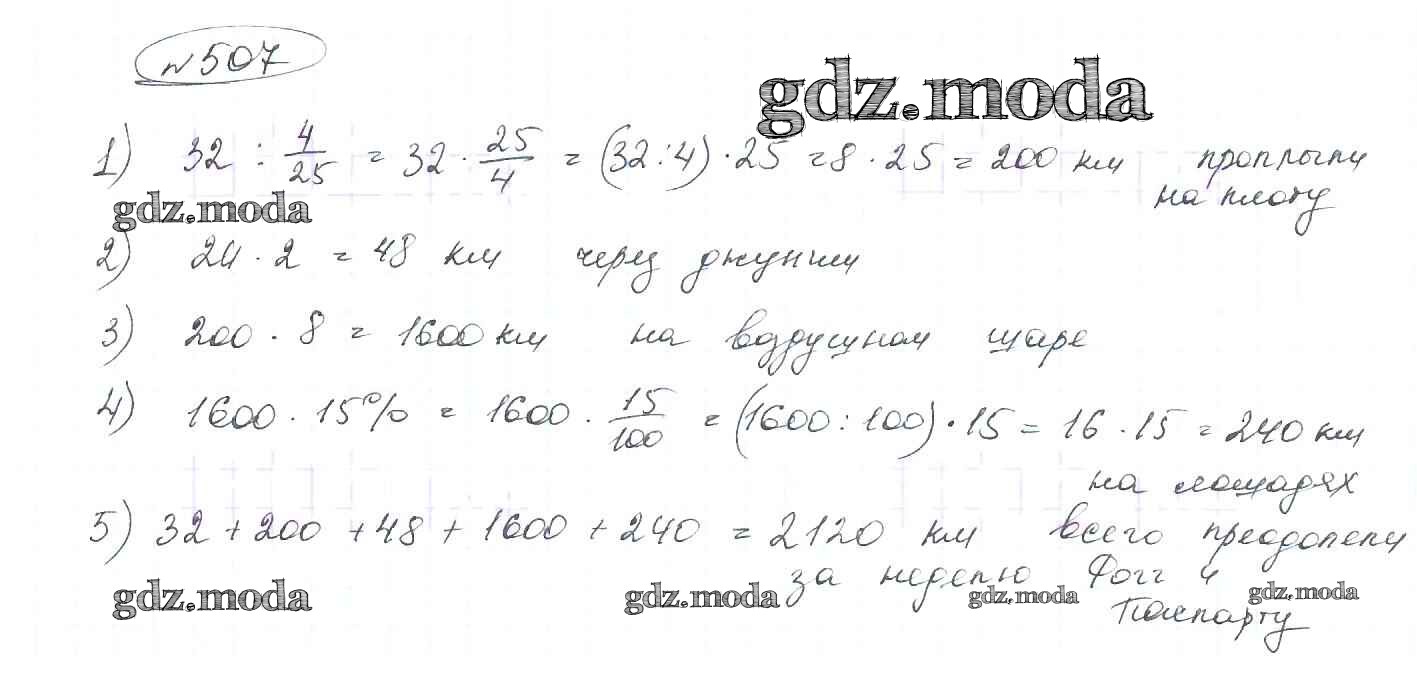 №507
gdz.moda
1) 32 : 4/25 = 32 · 25/4 = (32:4) · 25 = 8 · 25 = 200 км проплыли
на плоту
gdz.moda
2) 24 · 2 = 48 км через джунгли
3) 200 · 8 = 1600 км на воздушном шаре
4) 1600 · 15% = 1600 · 15/100 = (1600 : 100) · 15 = 16 · 15 = 240 км
на лошадях
5) 32 + 200 + 48 + 1600 + 240 = 2120 км всего преодолели
за неделю Фогг и
gdz.moda gdz.moda gdz.moda gdz.moda
Паспарту